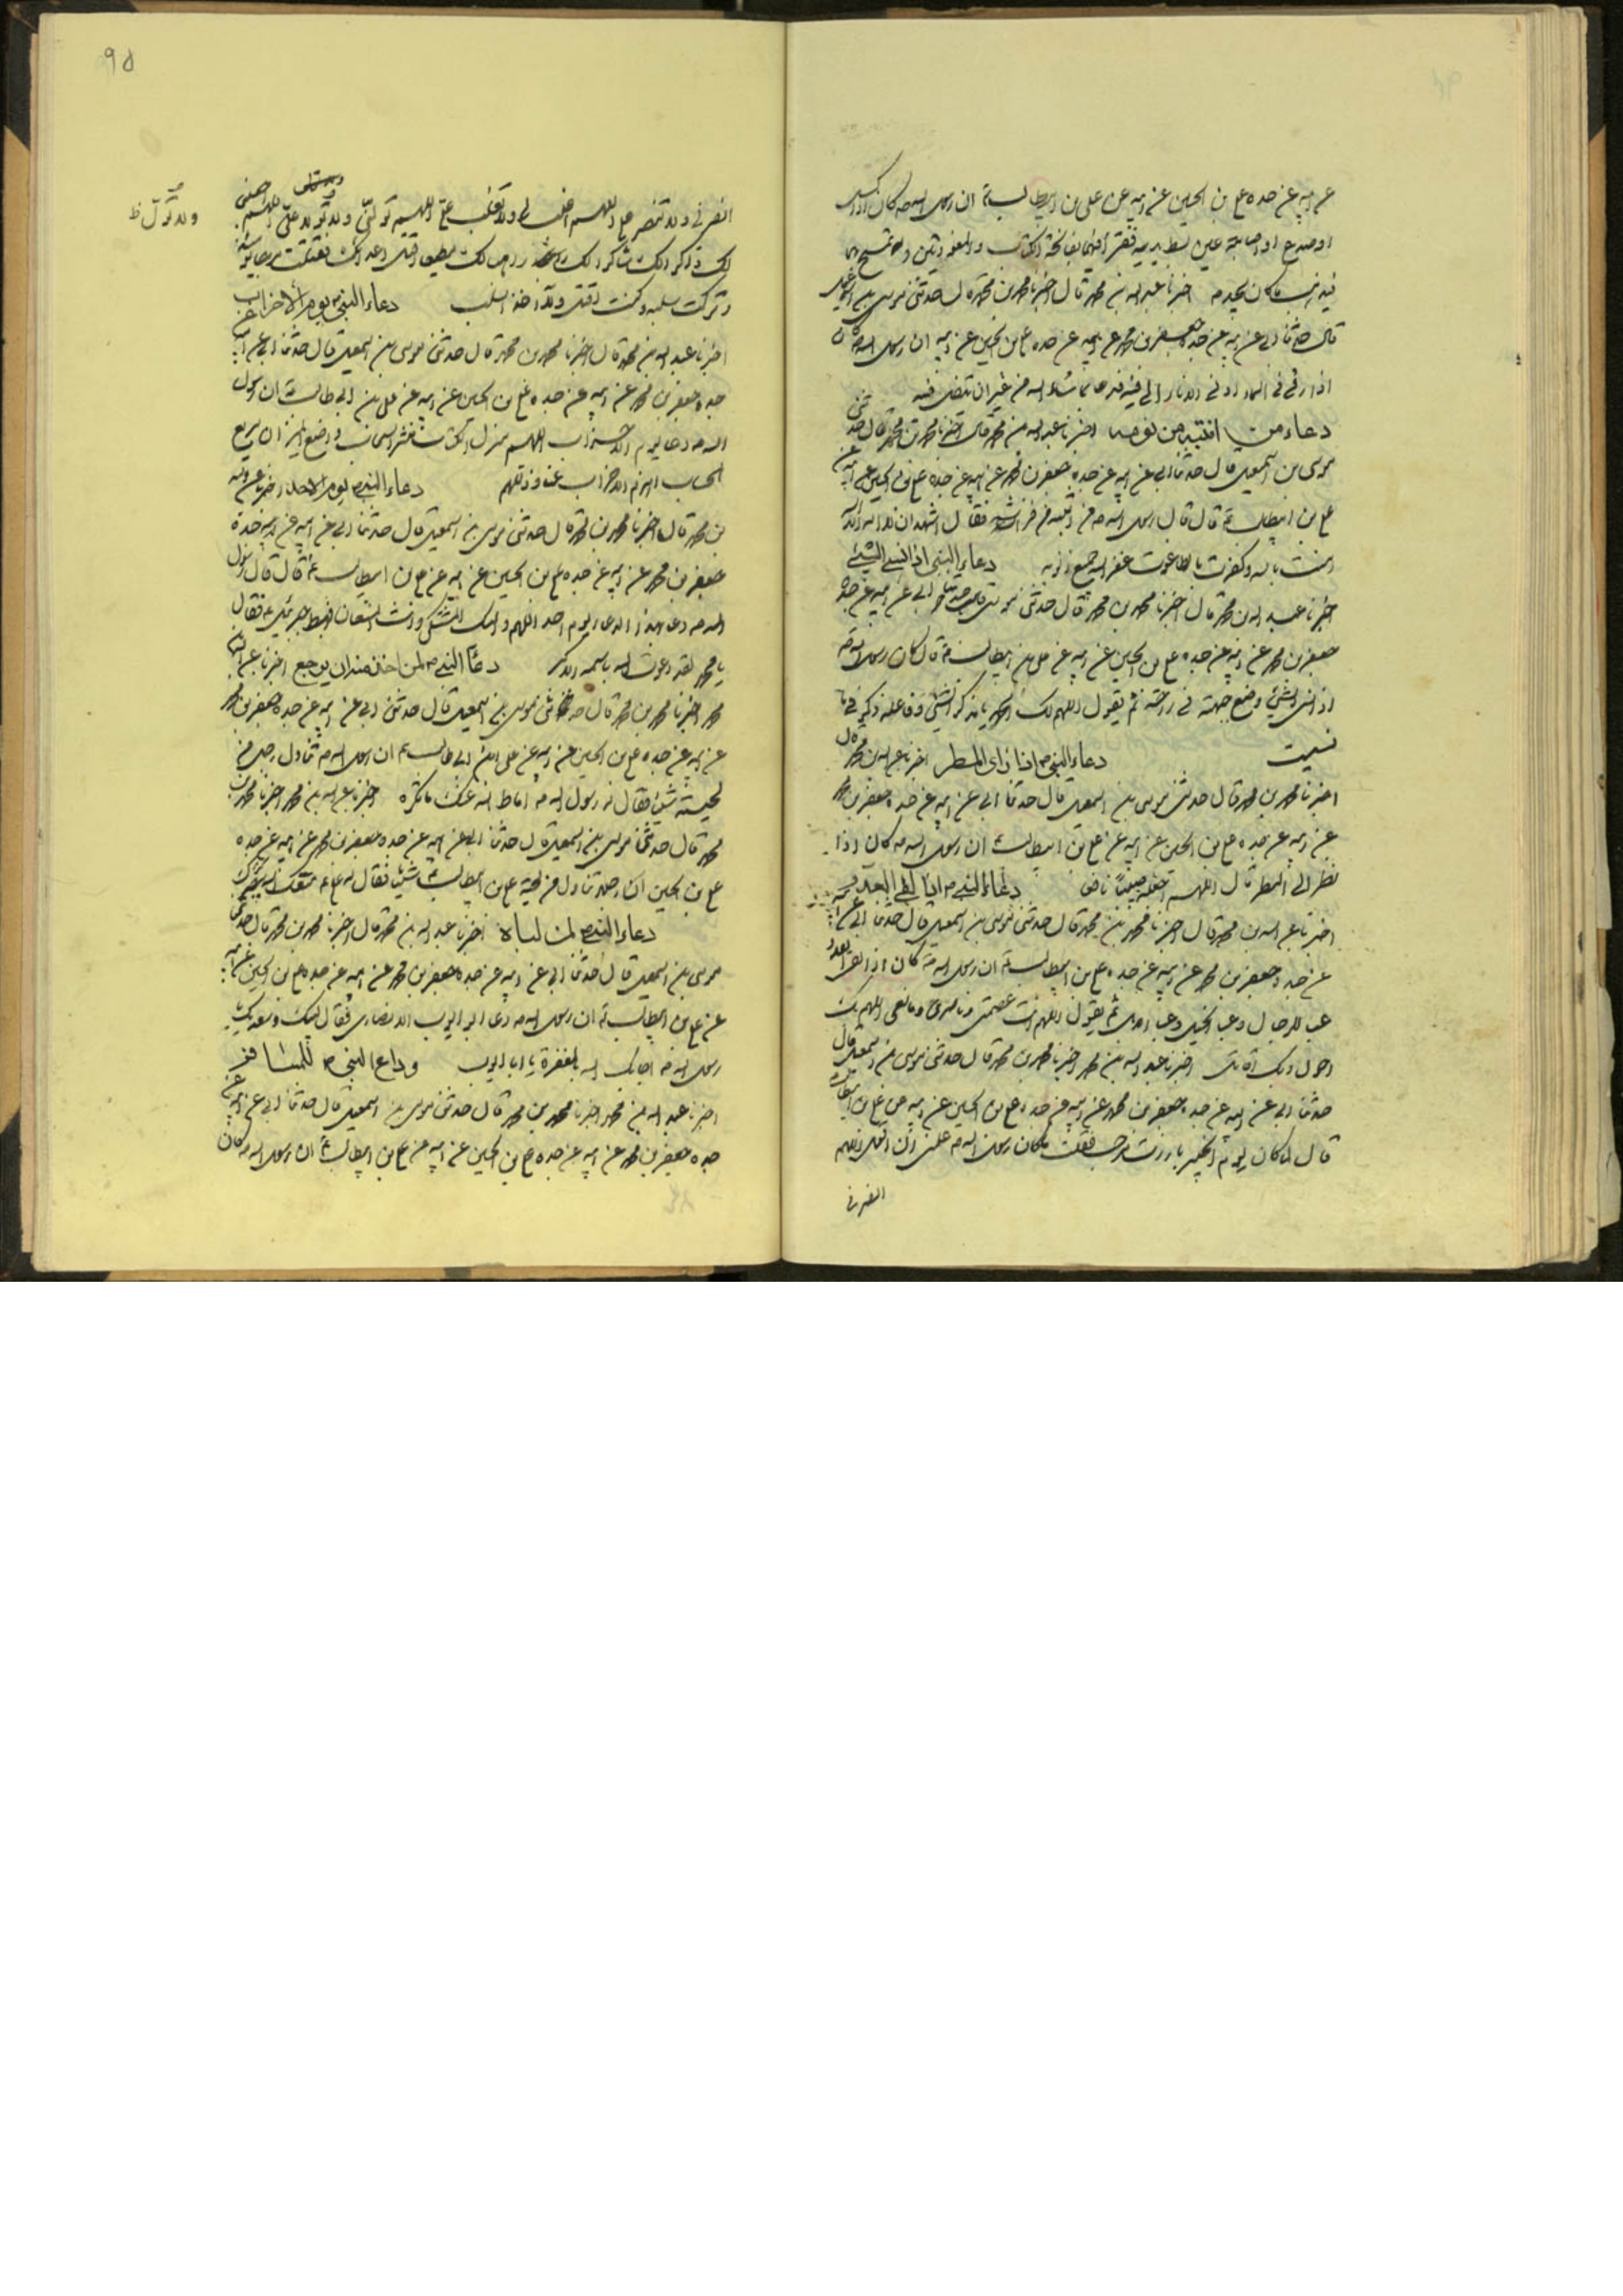 عن ابيه عن جده علي بن الحسين عن ابيه عن علي بن ابيطالب ع ان رسول الله ص كان اذا كسل
او صدع او اصابته عين بسط يديه فقرأ فيهما بفاتحة الكتاب والمعوذتين ثم يمسح بهما
فيذهب ما كان يجده اخبرنا عبد الله بن محمد قال اخبرنا محمد بن محمد قال حدثني موسى بن اسمعيل
قال حدثنا ابي عن ابيه عن جده جعفر بن محمد عن ابيه عن جده علي بن الحسين عن ابيه ان رسول الله ص
دعاء من انتبه من نومه اخبرنا عبد الله بن محمد قال اخبرنا محمد بن محمد قال حدثني
موسى بن اسمعيل قال حدثنا ابي عن ابيه عن جده جعفر بن محمد عن ابيه عن جده علي بن الحسين عن ابيه عن
علي بن ابيطالب ع قال قال رسول الله ص من انتبه من فراشه فقال اشهد ان لا اله الا الله
امنت بالله وكفرت بالطاغوت غفر الله جميع ذنوبه دعاء النبي اذا نسي الشيء
اخبرنا عبد الله بن محمد قال اخبرنا محمد بن محمد قال حدثني موسى قال حدثنا ابي عن ابيه عن جده
جعفر بن محمد عن ابيه عن جده علي بن الحسين عن ابيه عن علي بن ابيطالب ع قال كان رسول الله ص
اذا نسي الشيء وضع جبهته في راحته ثم يقول اللهم لك الحمد يا مذكر الشيء وفاعله ذكرني ما
نسيت دعاء النبي ص اذا رأى المطر اخبرنا عبد الله بن محمد قال
اخبرنا محمد بن محمد قال حدثني موسى بن اسمعيل قال حدثنا ابي عن ابيه عن جده جعفر بن محمد
عن ابيه عن جده علي بن الحسين عن ابيه عن علي بن ابيطالب ع ان رسول الله ص كان اذا
نظر الى المطر قال اللهم اجعله صيبا نافعا دعاء النبي ص اذا لقي العدو
اخبرنا عبد الله بن محمد قال اخبرنا محمد بن محمد قال حدثني موسى بن اسمعيل قال حدثنا ابي عن ابيه
عن جده جعفر بن محمد عن ابيه عن جده علي بن ابيطالب ع ان رسول الله ص كان اذا لقي العدو
عبأ الرجال وعبأ الخيل وعبأ الابل ثم يقول اللهم انت عصمتي وناصري ومانعي اللهم بك
احول وبك اقاتل اخبرنا عبد الله بن محمد اخبرنا محمد بن محمد قال حدثني موسى بن اسمعيل قال
حدثنا ابي عن ابيه عن جده جعفر بن محمد عن ابيه عن جده علي بن الحسين عن ابيه عن علي بن ابيطالب
قال لما كان يوم الخيبر بارزت مرحب فقلت ما كان رسول الله ص علمني ان اقول اللهم
انصرني
95
انصرني ولا تنصر علي اللهم اغلب لي ولا تغلب علي اللهم تولني ولا تول علي اللهم اجعلني
ولا تول ظ
لك ذاكرا لك شاكرا لك
وتركت سلبه وكنت اقتل ولا اخذ السلب دعاء النبي ص يوم الاحزاب
اخبرنا عبد الله بن محمد قال اخبرنا محمد بن محمد قال حدثني موسى بن اسمعيل قال حدثنا ابي عن ابيه عن
جده جعفر بن محمد عن ابيه عن جده علي بن الحسين عن ابيه عن علي بن ابي طالب ع ان رسول
الله ص دعا يوم الاحزاب اللهم منزل الكتاب منشر السحاب واضع الميزان سريع
الحساب اهزم الاحزاب عنا وذللهم دعاء النبي ص يوم الاحد اخبرنا عبد الله
بن محمد قال اخبرنا محمد بن محمد قال حدثني موسى بن اسمعيل قال حدثنا ابي عن ابيه عن جده
جعفر بن محمد عن ابيه عن جده علي بن الحسين عن ابيه عن علي بن ابيطالب ع قال قال رسول
الله ص دعا هذا الدعاء يوم احد اللهم واليك المشتكى وانت المستعان فهبط جبرئيل ع فقال
يا محمد لقد دعوت الله باسمه الاكبر دعاء النبي ص لمن اخذ اخبرنا عبد الله بن
محمد اخبرنا محمد بن محمد قال حدثني موسى بن اسمعيل قال حدثني ابي عن ابيه عن جده جعفر بن محمد
عن ابيه عن جده علي بن الحسين عن ابيه عن علي ابن ابي طالب ع ان رسول الله ص تناول رجل من
لحيته شيئا فقال له رسول الله ص اماط الله عنك ما تكره اخبرنا عبد الله بن محمد اخبرنا محمد بن
محمد قال حدثنا موسى بن اسمعيل قال حدثنا ابي عن ابيه عن جده جعفر بن محمد عن ابيه عن جده
علي بن الحسين ان رجلا تناول من لحية علي بن ابيطالب ع شيئا فقال له علي ع
دعاء النبي ص لمن لباه اخبرنا عبد الله بن محمد قال اخبرنا محمد بن محمد قال حدثني
موسى بن اسمعيل قال حدثنا ابي عن ابيه عن جده جعفر بن محمد عن ابيه عن جده علي بن الحسين عن ابيه
عن علي بن ابيطالب ع ان رسول الله ص دعا ابو ايوب الانصاري فقال لبيك وسعديك يا
رسول الله ص اجابك الله بالمغفرة يا ابا ايوب وداع النبي ص للمسافر
اخبرنا عبد الله بن محمد اخبرنا محمد بن محمد قال حدثني موسى بن اسمعيل قال حدثنا ابي عن ابيه عن
جده جعفر بن محمد عن ابيه عن جده علي بن الحسين عن ابيه عن علي بن ابيطالب ع ان رسول الله ص كان